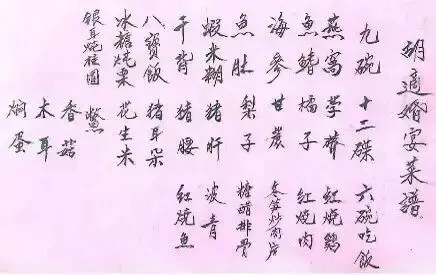 胡適婚宴菜譜
九碗 十二碟 六碗吃飯
燕窩 孛薺 紅燒鷄
魚鰭 橘子 紅燒肉
海參 甘蔗 冬筍炒肉片
魚肚 梨子 糖醋排骨
蝦米糊 猪肝 波青
干貝 猪腰 紅燒魚
八寶飯 猪耳朵
冰糖炖栗 花生米
銀耳炖桂圓 鱉
香菇
木耳
焖蛋